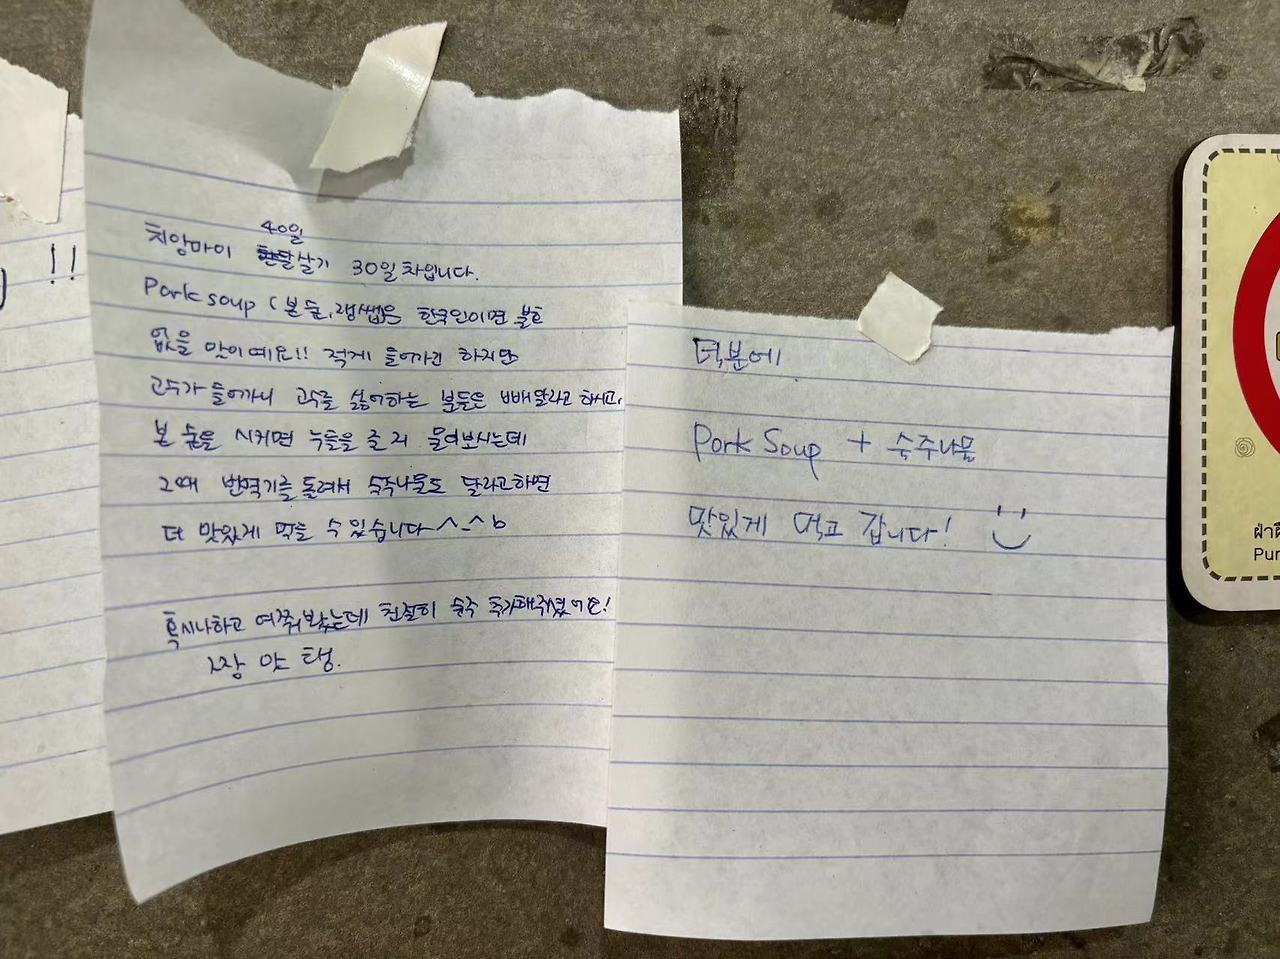 !!
40일
치앙마이 한달살기 30일차입니다.
Pork soup (본 숩, 갱쌥)은 한국인이면 불호
없을 맛이에요!! 적게 들어가긴 하지만
고수가 들어가니 고수를 싫어하는 분들은 빼달라고 하시고,
본 숩을 시키면 누들을 줄 지 물어보시는데
그때 번역기를 돌려서 숙주나물도 달라고하면
더 맛있게 먹을 수 있습니다^-^b
혹시나하고 여쭤봤는데 친절히 숙주 추가해주셨어요!
사장 안 탱.
덕분에
Pork Soup + 숙주나물
맛있게 먹고 갑니다!
Pur